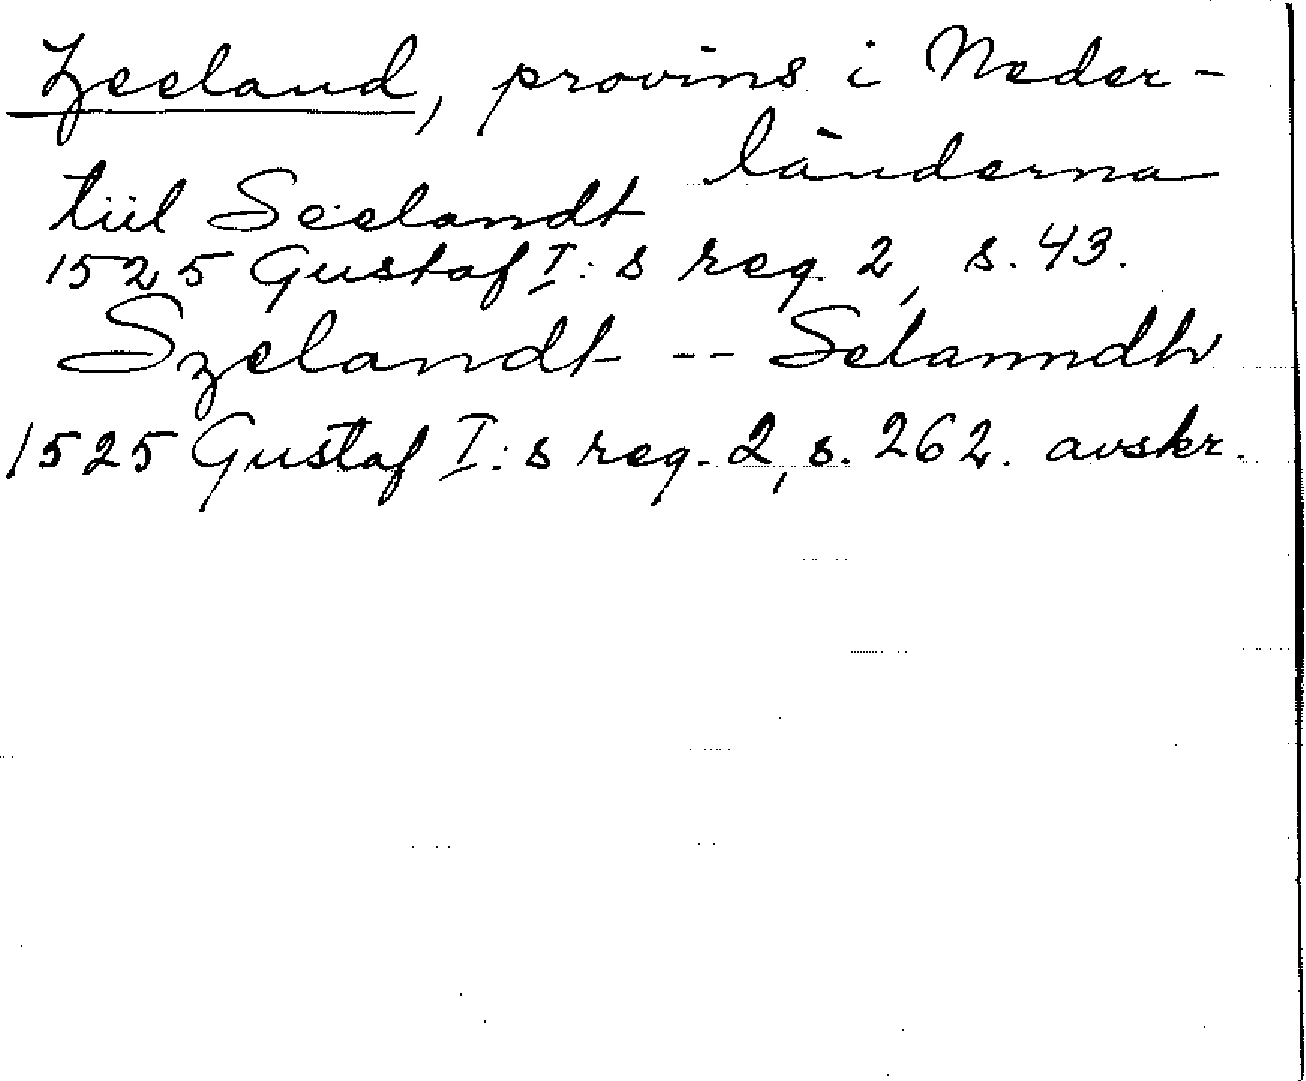 Zeeland, provins i Neder-
länderna
tiil Seelandt
1525 Gustaf I:s reg. 2, s. 43.
Szelandt -- Selanndh
1525 Gustaf I:s reg. 2, s. 262. avskr.